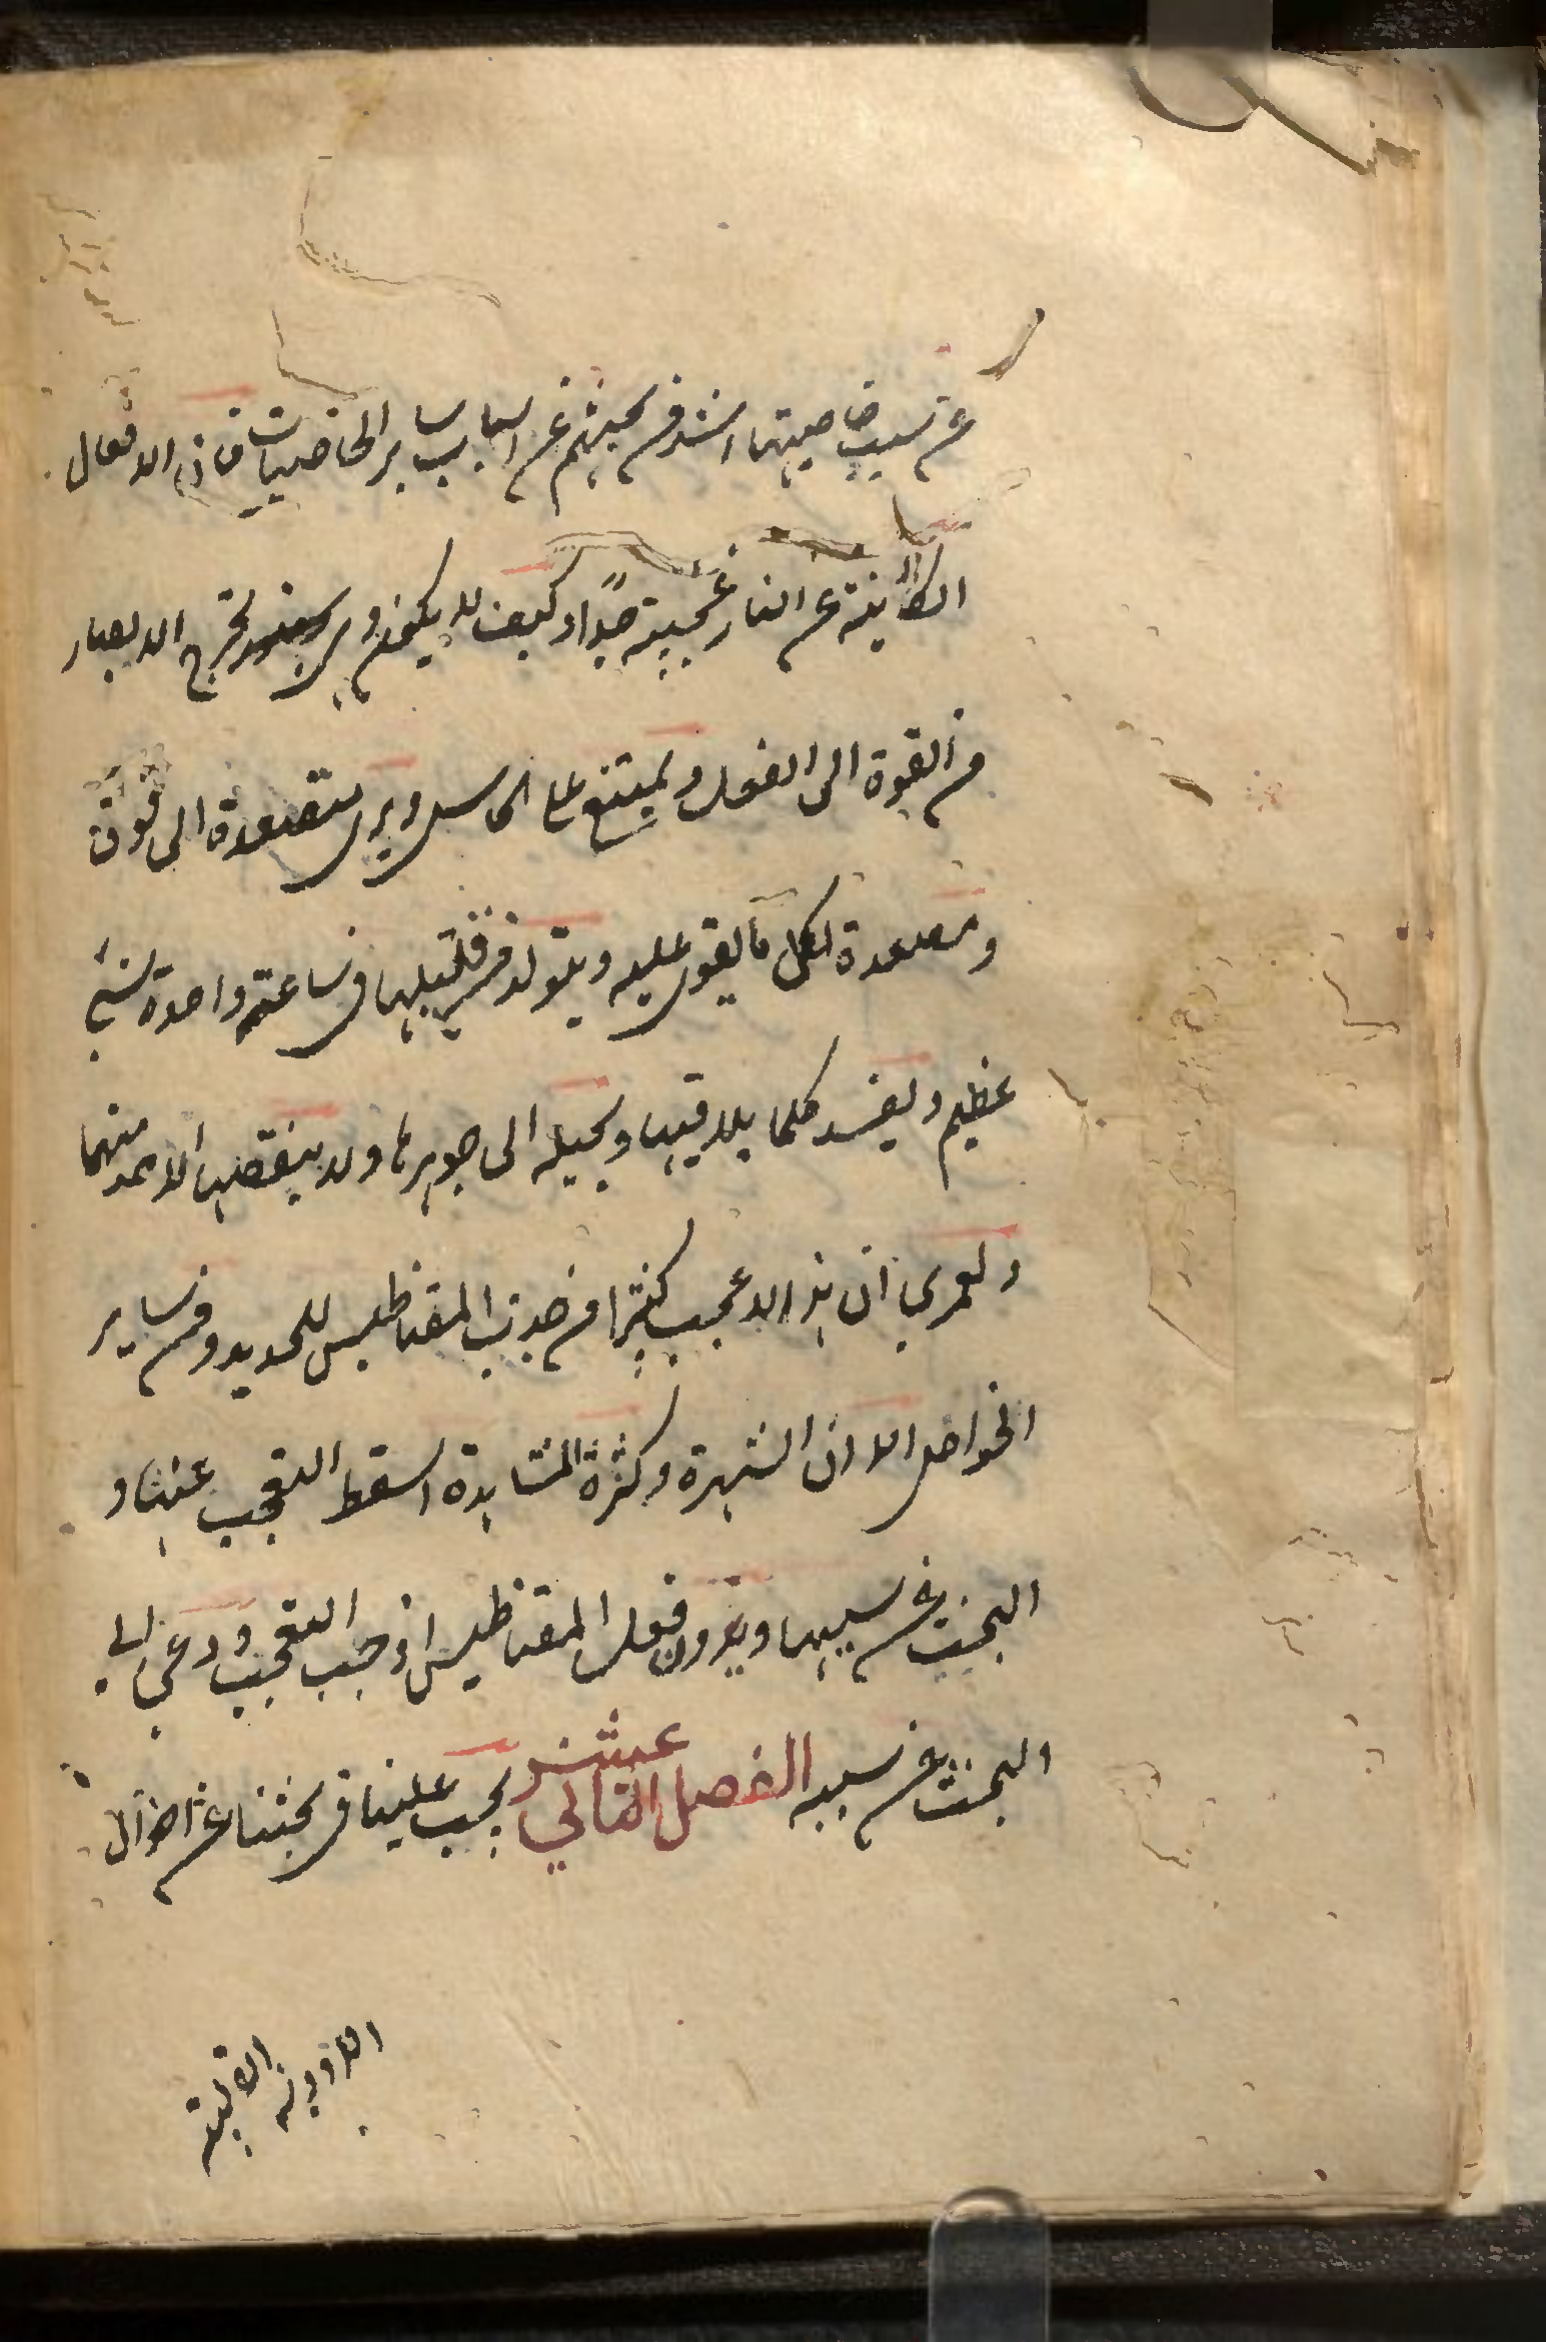 عن سبب خاصيتها اشد من بحثهم عن اسباب ساير الخاصيات فان الافعال
الكاينة عن النار عجيبة جدا وكيف لا يكون وهي تخرج الابصار
من القوة الى الفعل ويمتنع على الحاس ويرى متصعدة الى فوق
ومصعدة لكل ما يقوى عليه ويتولد من قليلها في ساعة واحدة شيء
عظيم ويفسد كلما يلاقيها ويحيله الى جوهرها ولا ينقصها الاخذ منها
ولعمري ان هذا لاعجب كثيرا من جذب المقناطيس للحديد ومن ساير
الخواص الا ان الشهرة وكثرة المشاهدة اسقط التعجب عنها و
البحث عن سببها وندور فعل المقناطيس اوجب التعجب ودعى الى
البحث عن سببه الفصل الثاني عشر يجب علينا في بحثنا عن احوال
الادوية القلبية